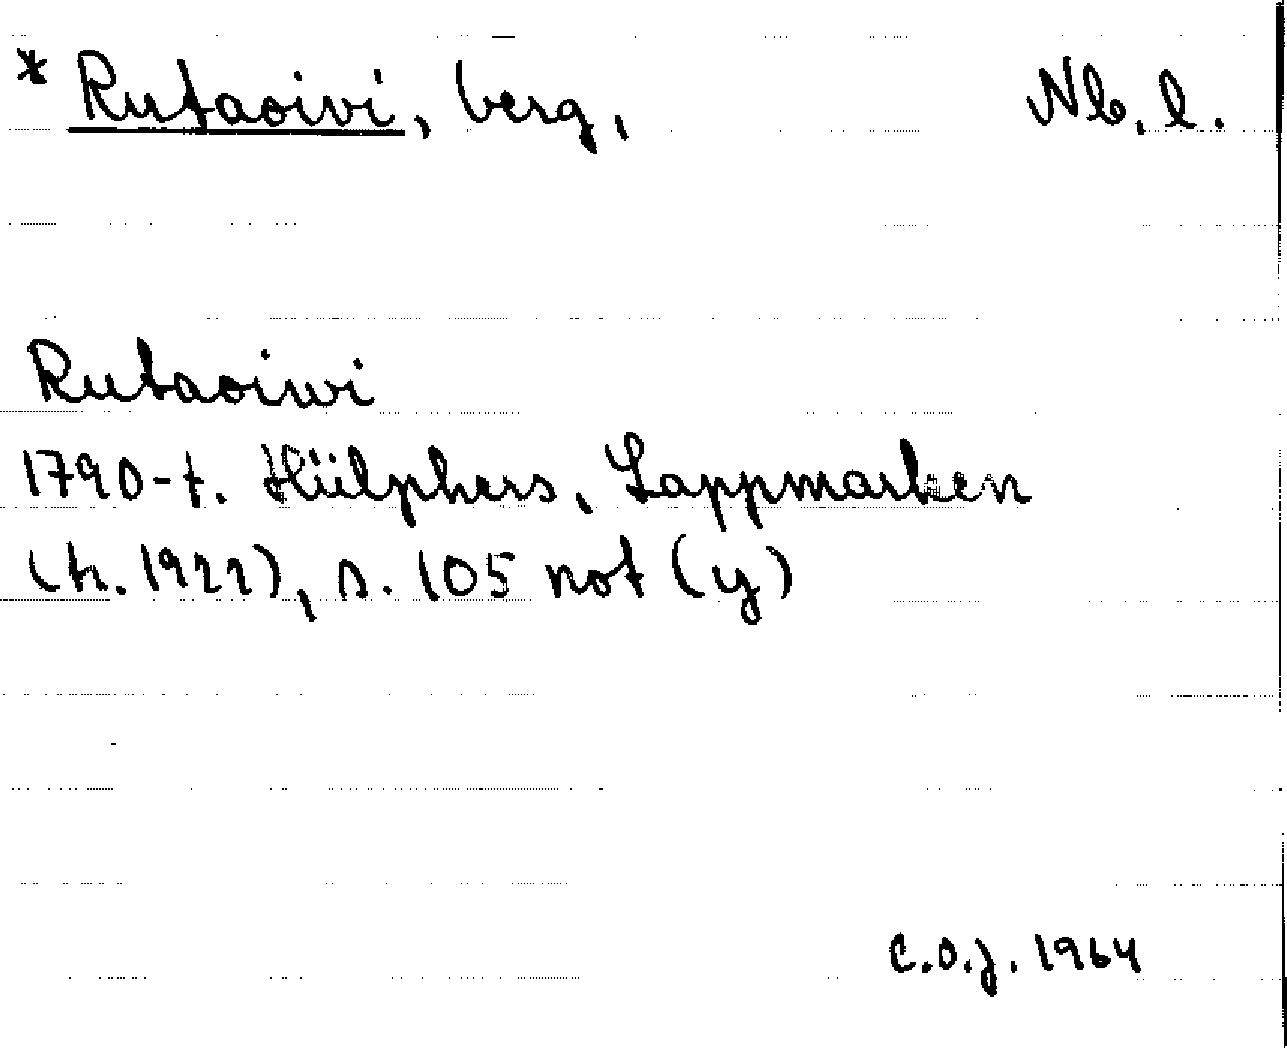 * Rutaoivi, berg, Nb. l.
Rutaoiwi
1790-t. Hülphers, Lappmarken
(tr. 1922), s. 105 not (y)
C.O.J. 1964